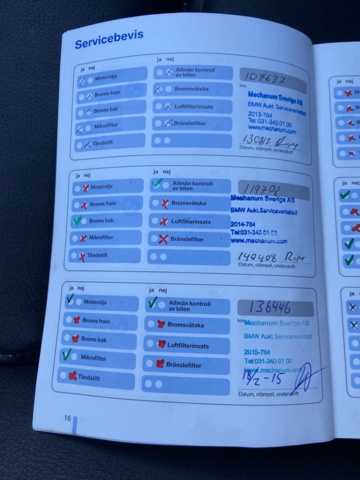 Servicebevis
ja nej
ja nej
Motorolja
Broms fram
Broms bak
Mikrofilter
Tändstift
Allmän kontroll
av bilen
Bromsvätska
Luftfilterinsats
Bränslefilter
107632
km
Mechanum Sverige AB
BMW Aukt. Serviceverkstad
2013-784
Tel:031-340 01 00
www.mechanum.com
Datum, stämpel, underskrift
ja nej
ja nej
Motorolja
Broms fram
Broms bak
Mikrofilter
Tändstift
Allmän kontroll
av bilen
Bromsvätska
Luftfilterinsats
Bränslefilter
119798
Mechanum Sverige AB
BMW Aukt. Serviceverkstad
2014-784
Tel:031-340 01 00
www.mechanum.com
140408
Datum, stämpel, underskrift
ja nej
ja nej
Motorolja
Broms fram
Broms bak
Mikrofilter
Tändstift
Allmän kontroll
av bilen
Bromsvätska
Luftfilterinsats
Bränslefilter
136446
km
Mechanum Sverige AB
BMW Aukt. Serviceverkstad
2015-784
Tel:031-340 01 00
www.mechanum.com
Datum, stämpel, underskrift
16